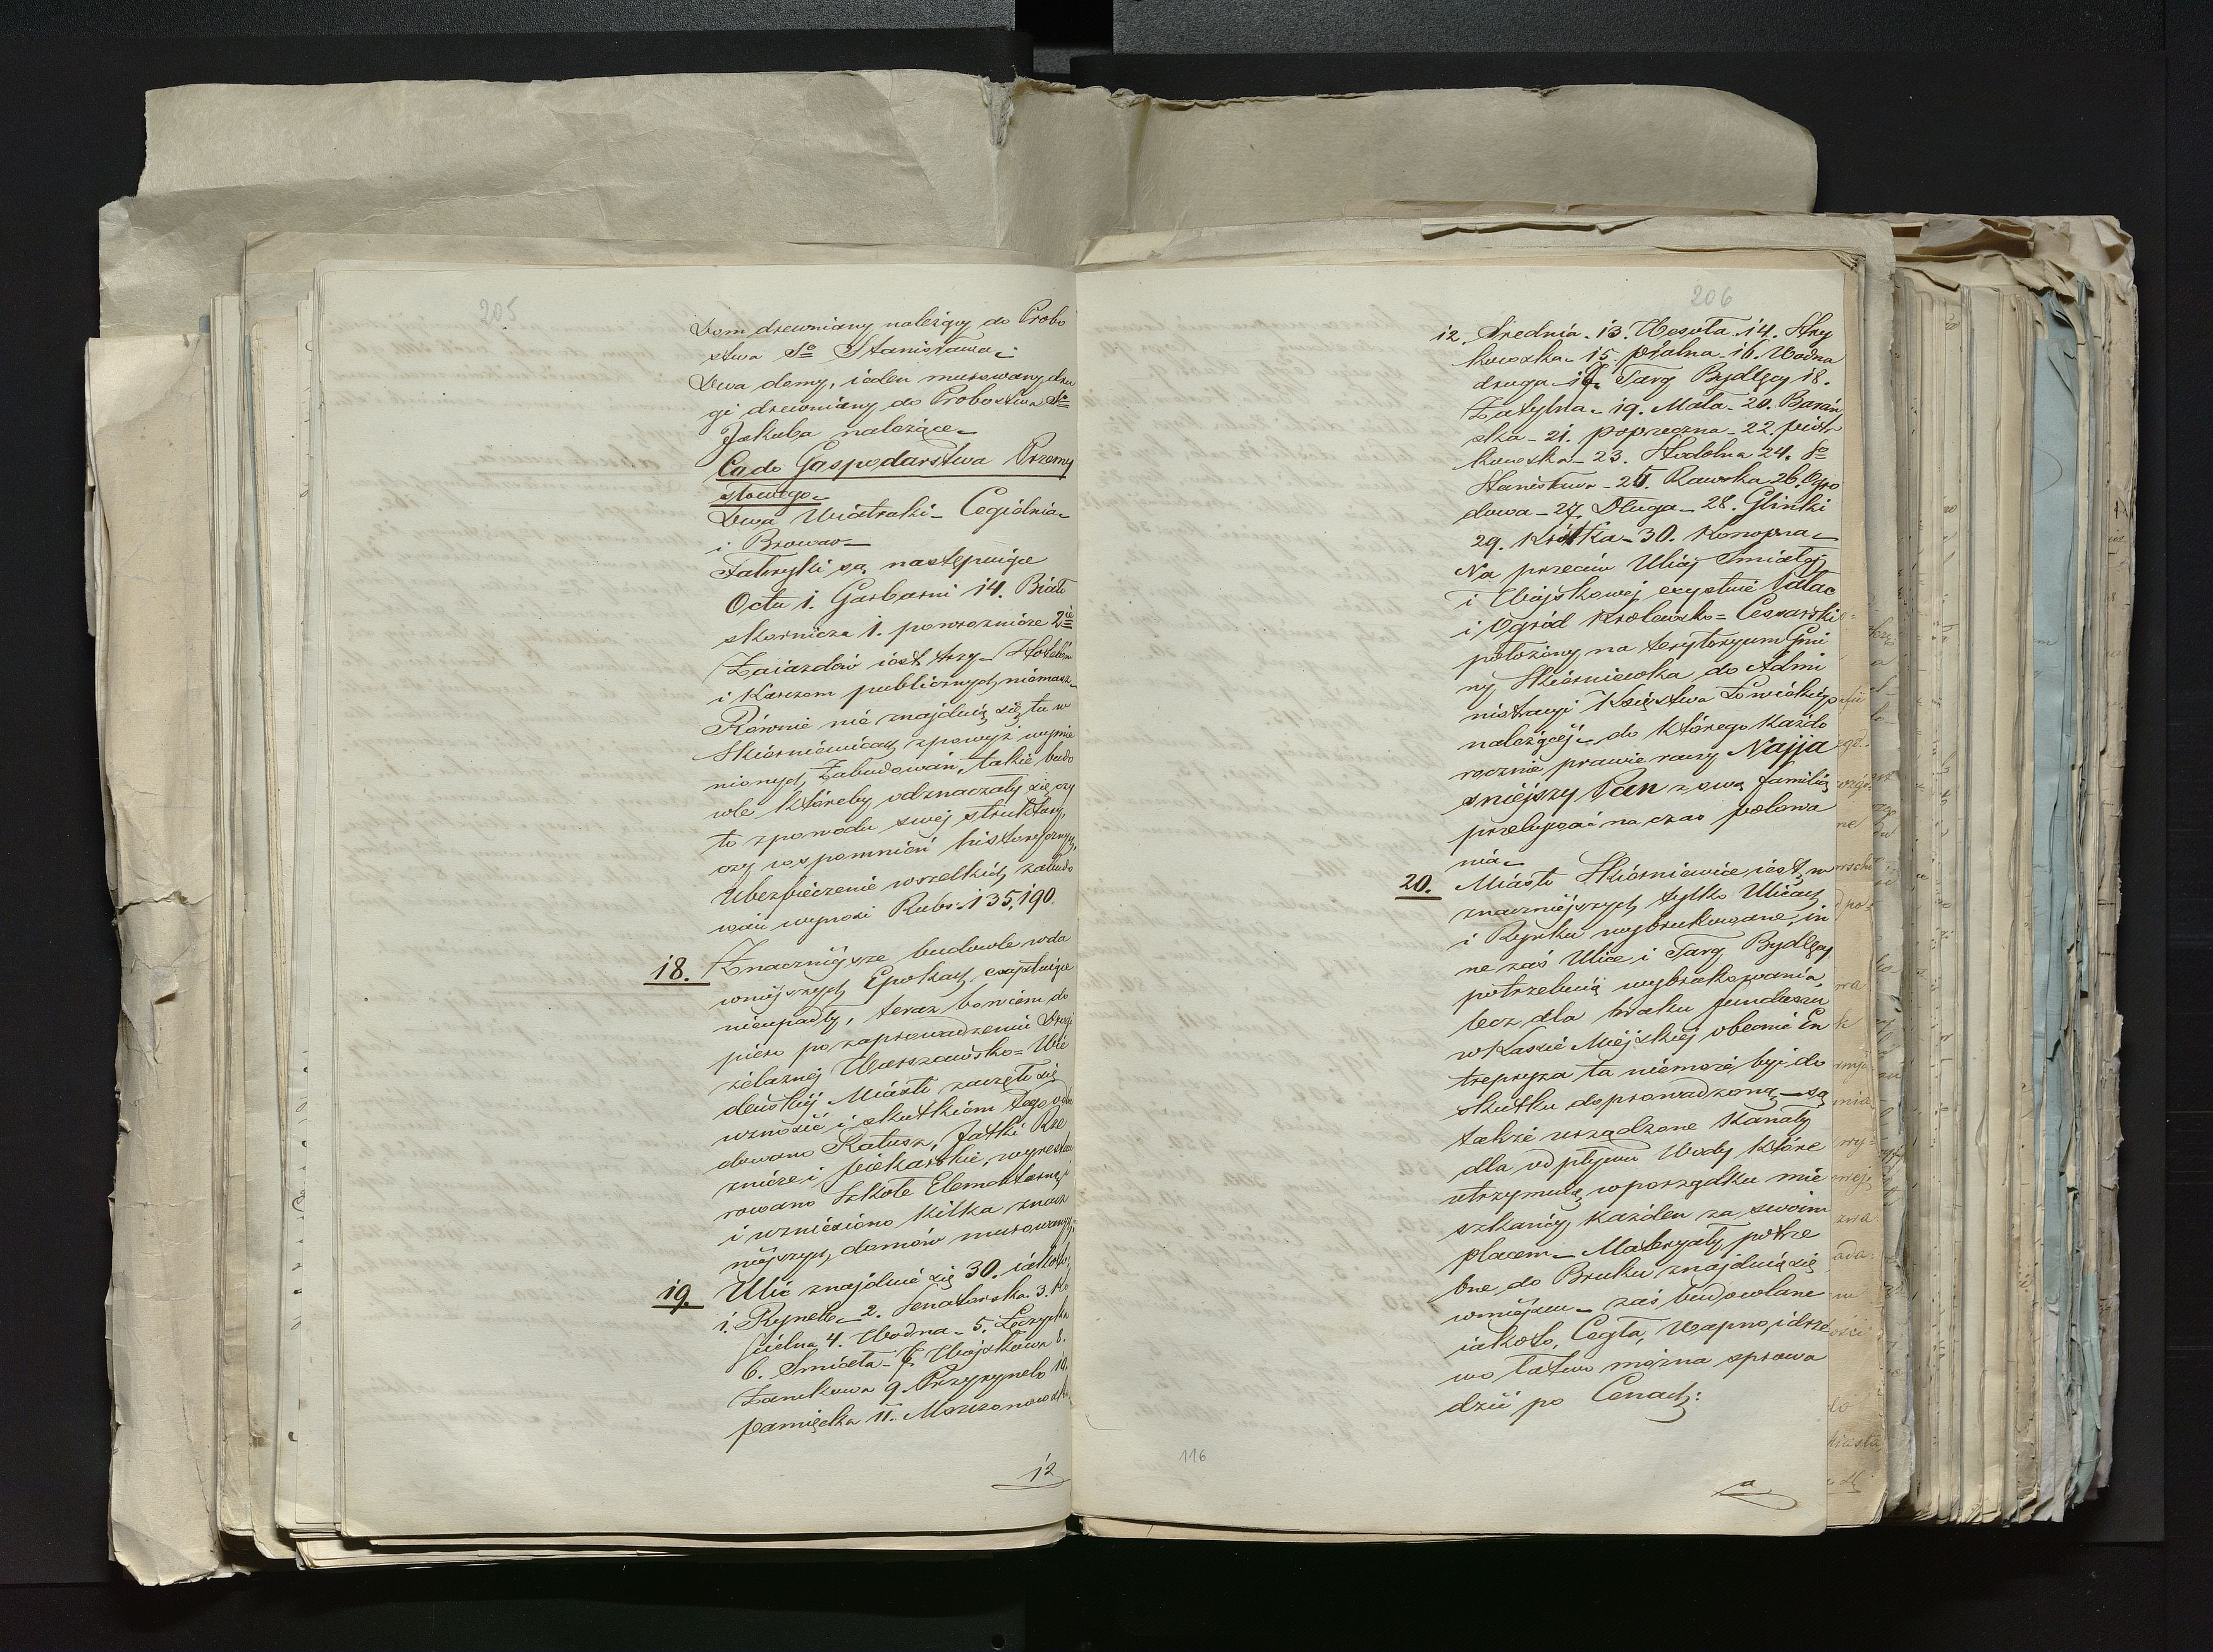 205
Dom drewniany należący do Probo
stwa So Stanisława
Dwa domy, ieden murowany dru
gi drewniany do Probostwa So
Jakuba należące
Co do Gospodarstwa Przemy
słowego
Dwa Wiatraki - Cegielnia
i Browar
Fabryki są następuiące
Octu 1. Garbarni 14. Biało
skornicza 1. powroznicze 2ie
Zaiazdów iest trzy - Hotelów
i Karczem publicznych niemasz
Równie nie znajduią się tu w
Skierniewicach zpowyż wymie
nionych Zabudowań, takie budo
wle któreby odznaczały się czy
to zpowodu swej struktury,
czy wspomnień historycznych,
Ubezpieczenie wszelkich zabudo
wań wynosi Rubs. 135,190
18. Znaczniejsze budowle wda
wniejszych Epokach exystuiące
nieupadły, teraz bowiem do
piero po zaprowadzeniu Drogi
żelaznej Warszawsko=Wie
deńskiej Miasto zaczęło się
wznosić i skutkiem tego odbu
dowano Ratusz, Jatki Rze
znicze i piekarskie, wyresta
rowano Szkołe Elementarną i
i wzniesiono kilka znacz
niejszych domów murowanych
19. Ulic znajduie się 30. iakoto:
1. Rynek - 2. Senatorska 3. Ko
ścielna 4. Wodna - 5. Łęczycka
6. Śmiała - 7. Wojskowa 8.
Zamkowa 9. Przyrynek 10.
pamięcka 11. Mszczonowska
12
206
12. Średnia - 13. Wesoła - 14. Stry
kowska - 15. polna - 16. Wodna
druga - 17. Targ Bydlęcy 18.
Zatylna - 19. Mała - 20. Barań
ska - 21. poprzeczna - 22. piotr
kowska - 23. Stodolna 24. So
Stanisława - 25. Rawska 26. Ogro
dowa - 27. Długa - 28. Glinki
29. Krótka - 30. Konopna
Na przeciw Ulicy Śmiałej
i Wojskowej exystuie Pałac
i Ogród Królewsko=Cesarski
położony na terytoryum Gmi
ny Skierniewka do Admi
nistracyi Księstwa Łowickiego
należącej - do którego każdo
rocznie prawie raczy Najja
śniejszy Pan z swą familią
przebywać na czas polowa
nia
20. Miasto Skierniewice iest w
znaczniejszych tylko Ulicach
i Rynku wybrukowane, in
ne zaś Ulice i Targ Bydlęcy
potrzebuią wybrukowania,
lecz dla braku funduszu
w Kassie Miejskiej obecnie En
trepryza ta niemoże być do
skutku doprowadzoną - są
także urządzone Kanały
dla odpływu Wody które
utrzymuią wporządku mie
szkańcy każden za swoim
placem - Materyały potrze
bne do Bruku znajduią się
wmiejscu - zaś budowlane
iakoto, Cegła, Wapno, i drze
wo łatwo można sprowa
dzić po Cenach:
a
116